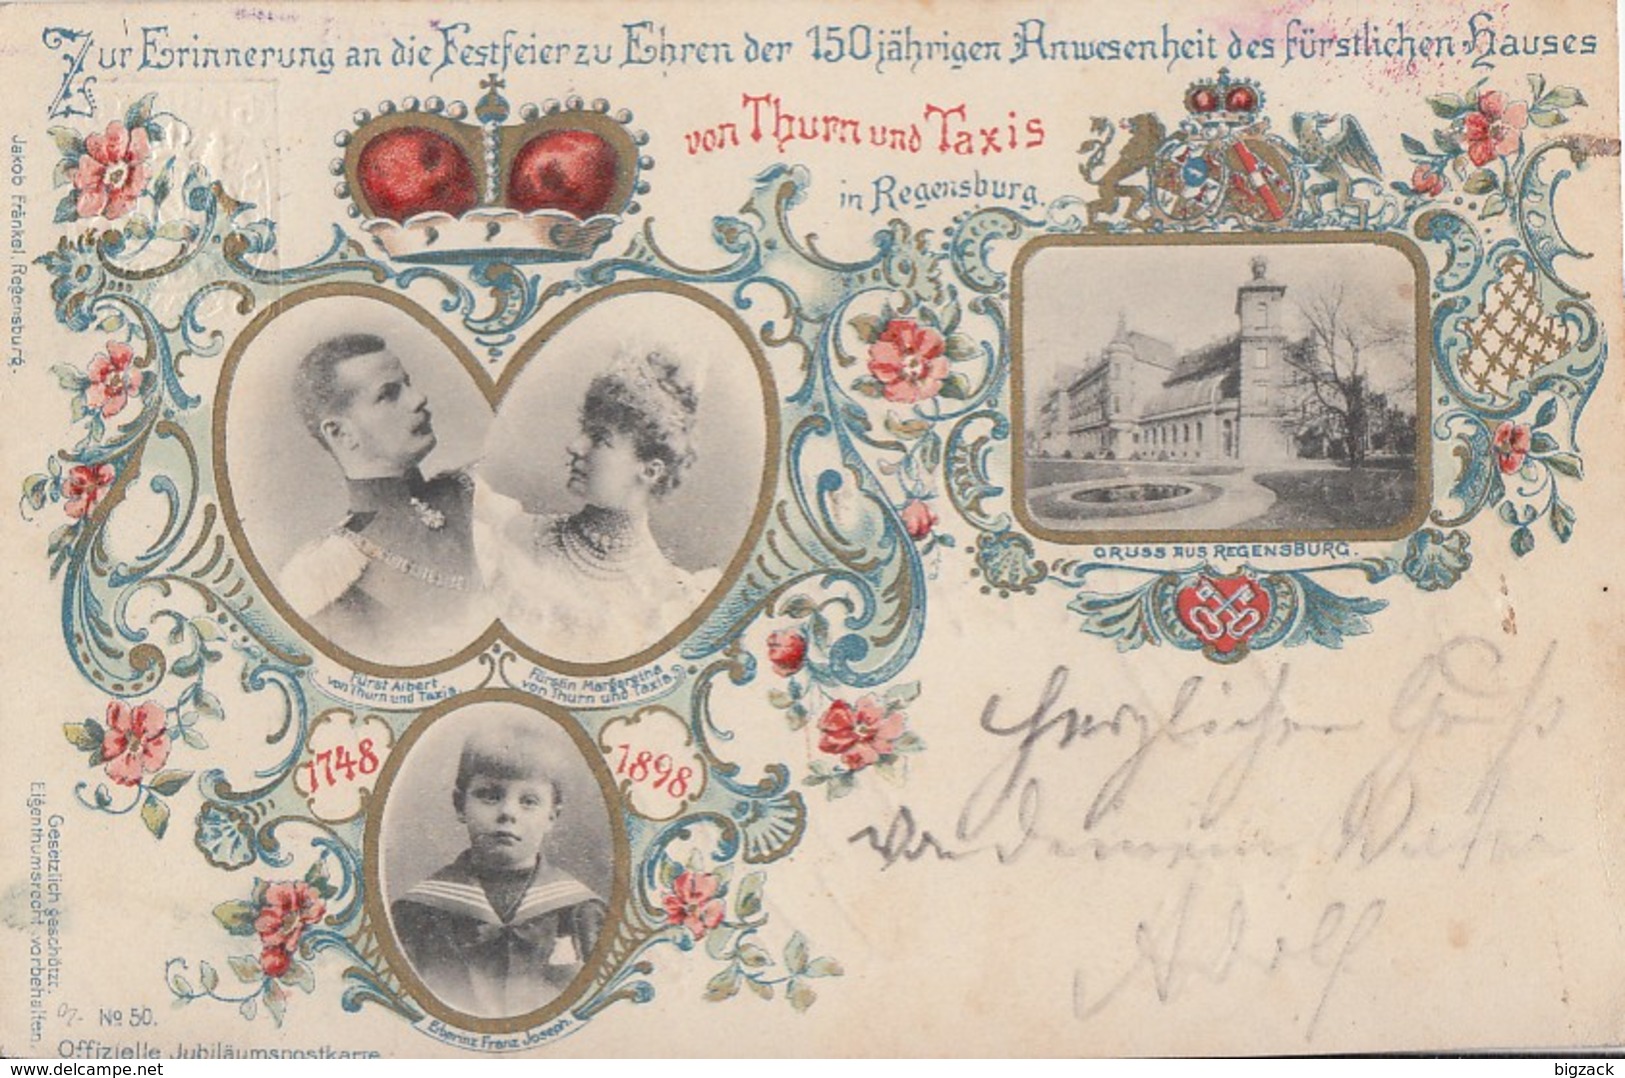 Zur Erinnerung an die Festfeier zu Ehren der 150jährigen Anwesenheit des fürstlichen Hauses
von Thurn und Taxis
in Regensburg.
Jakob Fränkel, Regensburg.
GRUSS AUS REGENSBURG.
Fürst Albert
von Thurn und Taxis.
Fürstin Margaretha
von Thurn und Taxis.
1748
1898
Herzlichen Gruß
von
Adolf
Erbprinz Franz Joseph.
Gesetzlich geschützt.
Eigenthumsrecht vorbehalten.
No 50.
Offizielle Jubiläumspostkarte.
delcampe.net
bigzack